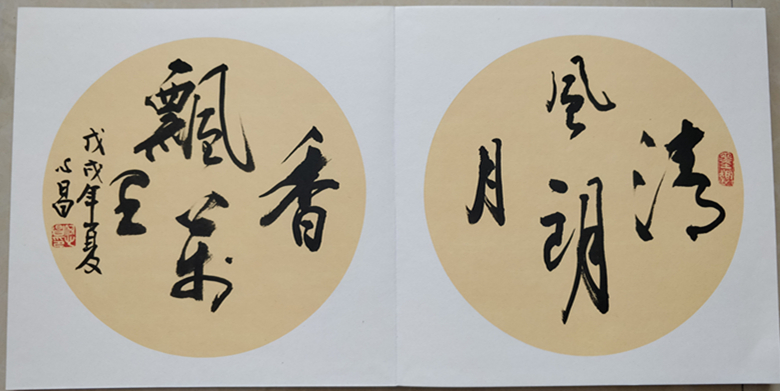 清
風朗
月
香
飄萬
里
戊戌年夏
心昌